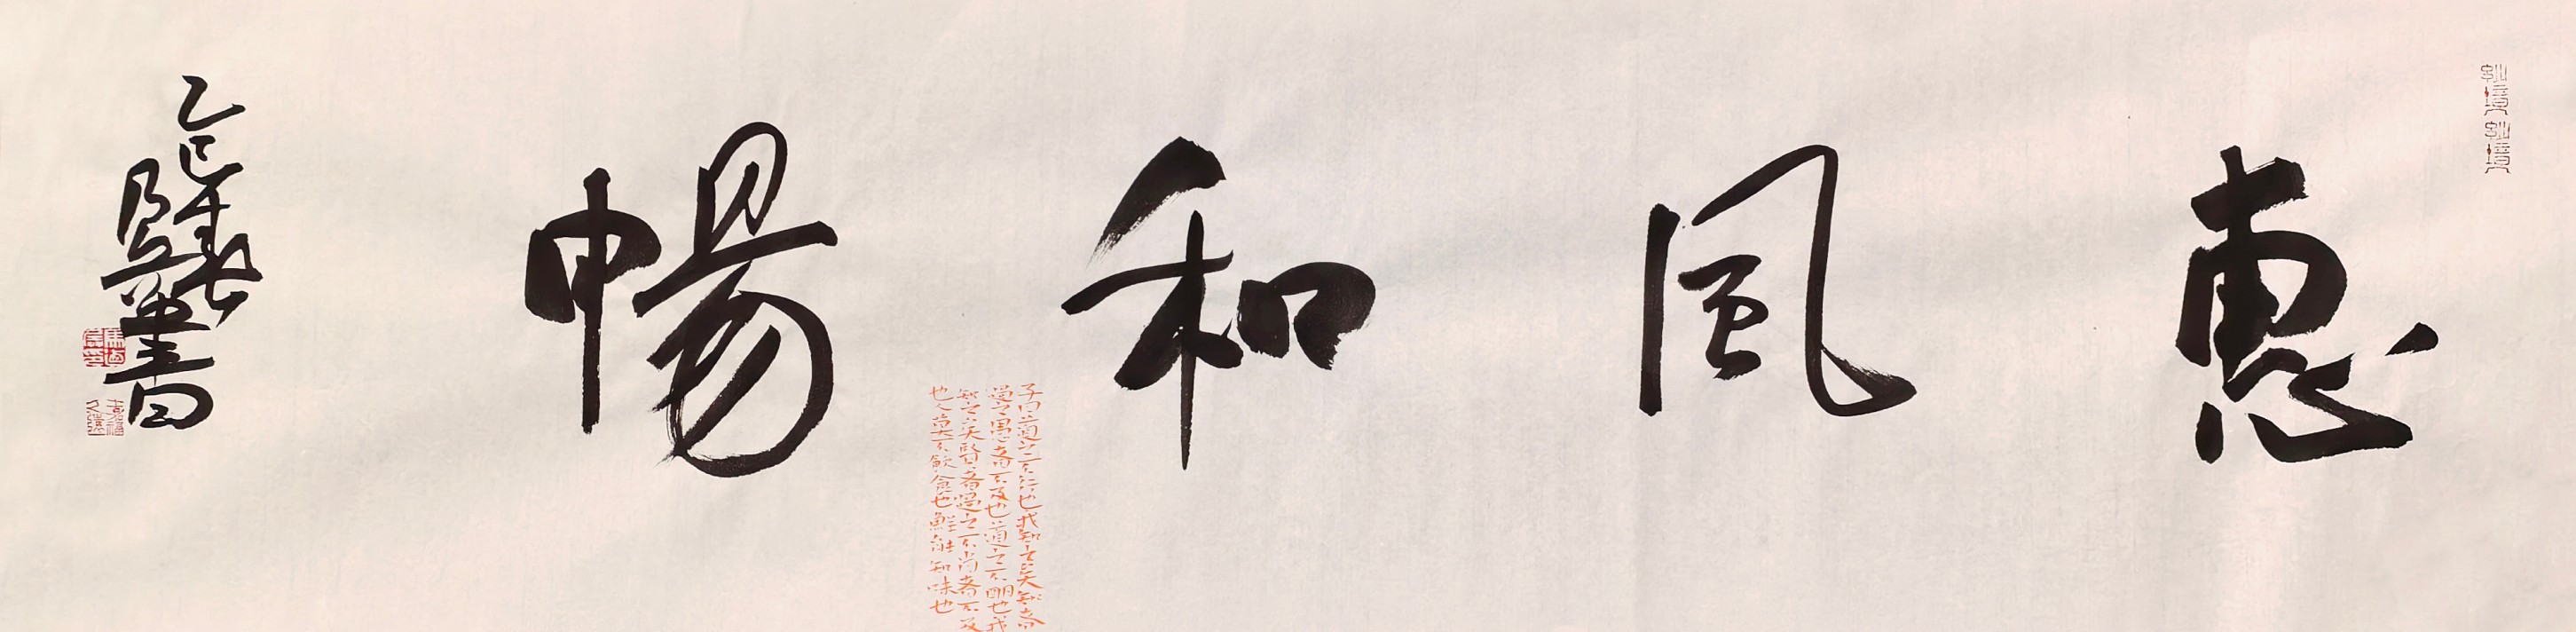 惠風和暢
子曰道之不行也我知之矣知者
過之愚者不及也道之不明也我
知之矣賢者過之不肖者不及
也人莫不飲食也鮮能知味也
乙巳年春
書